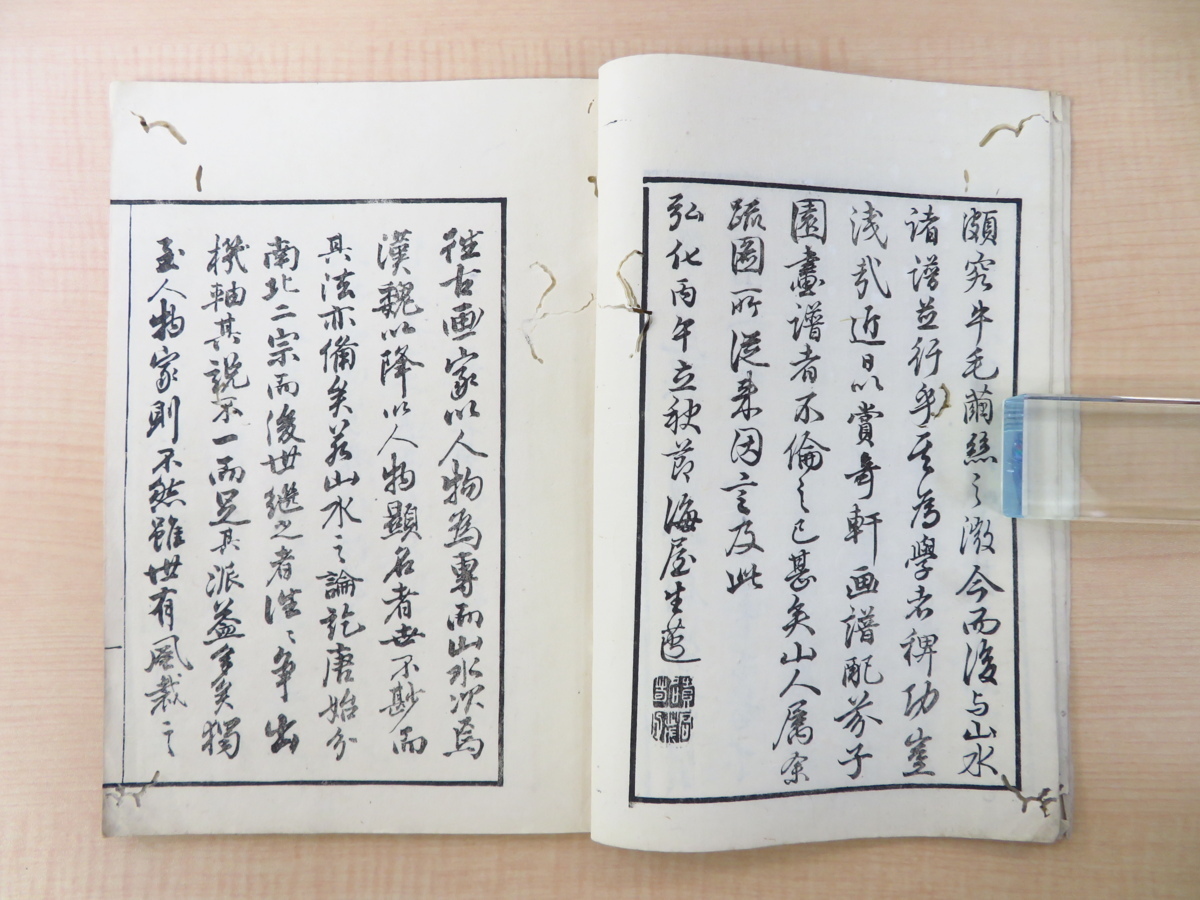 頗究牛毛繭絲之微今而後与山水
諸譜並行乎其為學者稗功豈
浅哉近日以賞奇軒画譜配芥子
園畫譜者不倫之已甚矣山人属余
跋圖所從来因言及此
弘化丙午立秋節海屋生
往古画家以人物為専而山水次焉
漢魏以降以人物顯名者世不尠而
其法亦備矣若山水之論訖唐始分
南北二宗而後世継之者往々争出
機軸其説不一而足其派益多矣獨
至人物家則不然雖世有風裁之